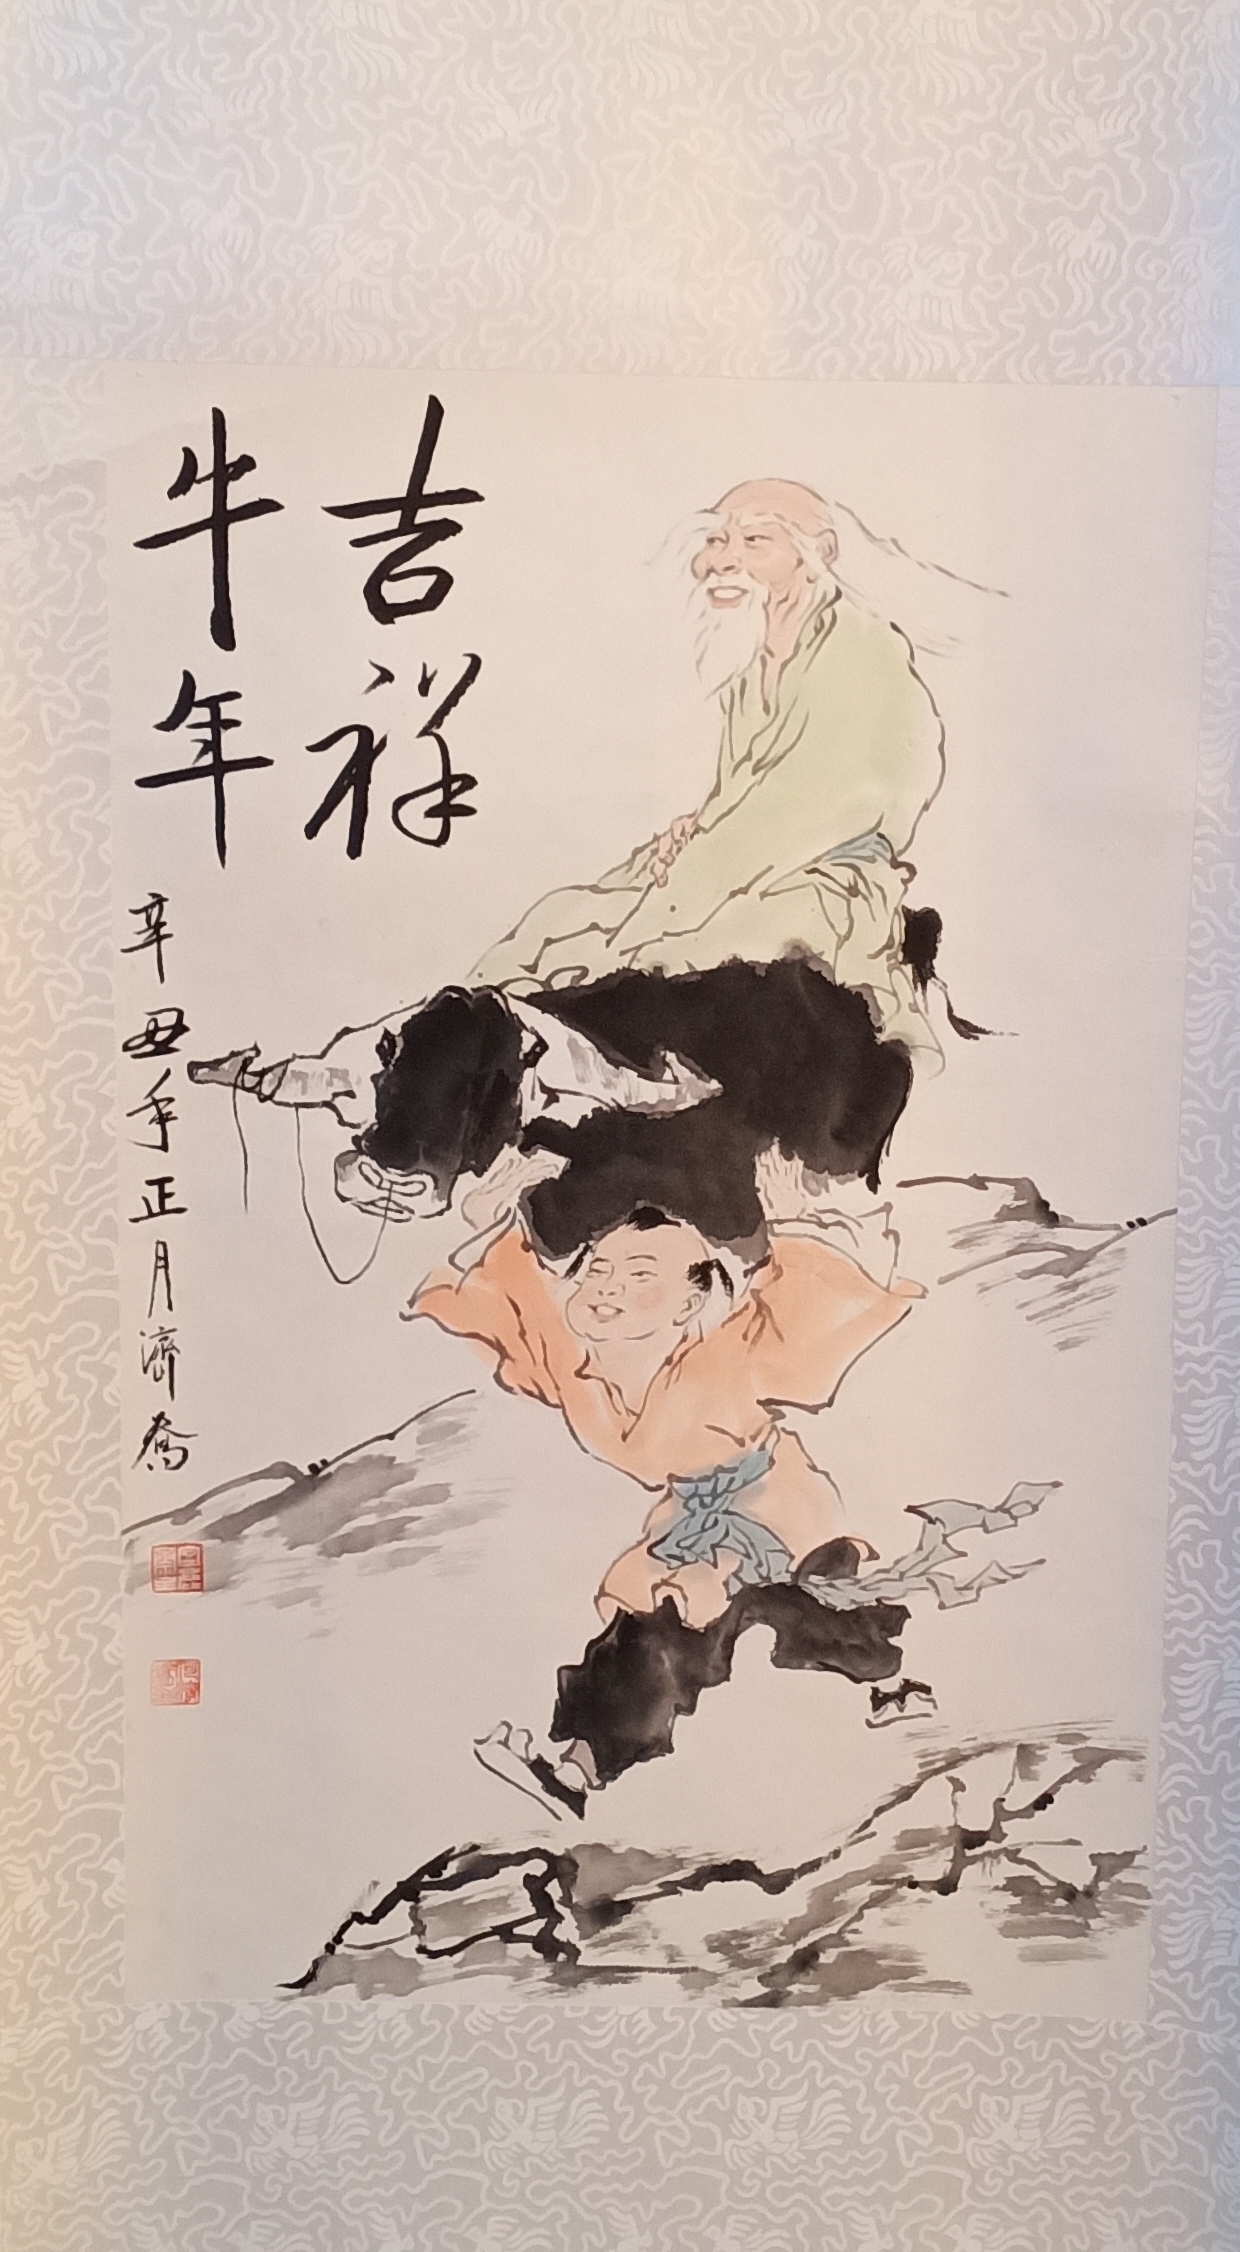 吉祥
牛年
辛丑年正月濟喬